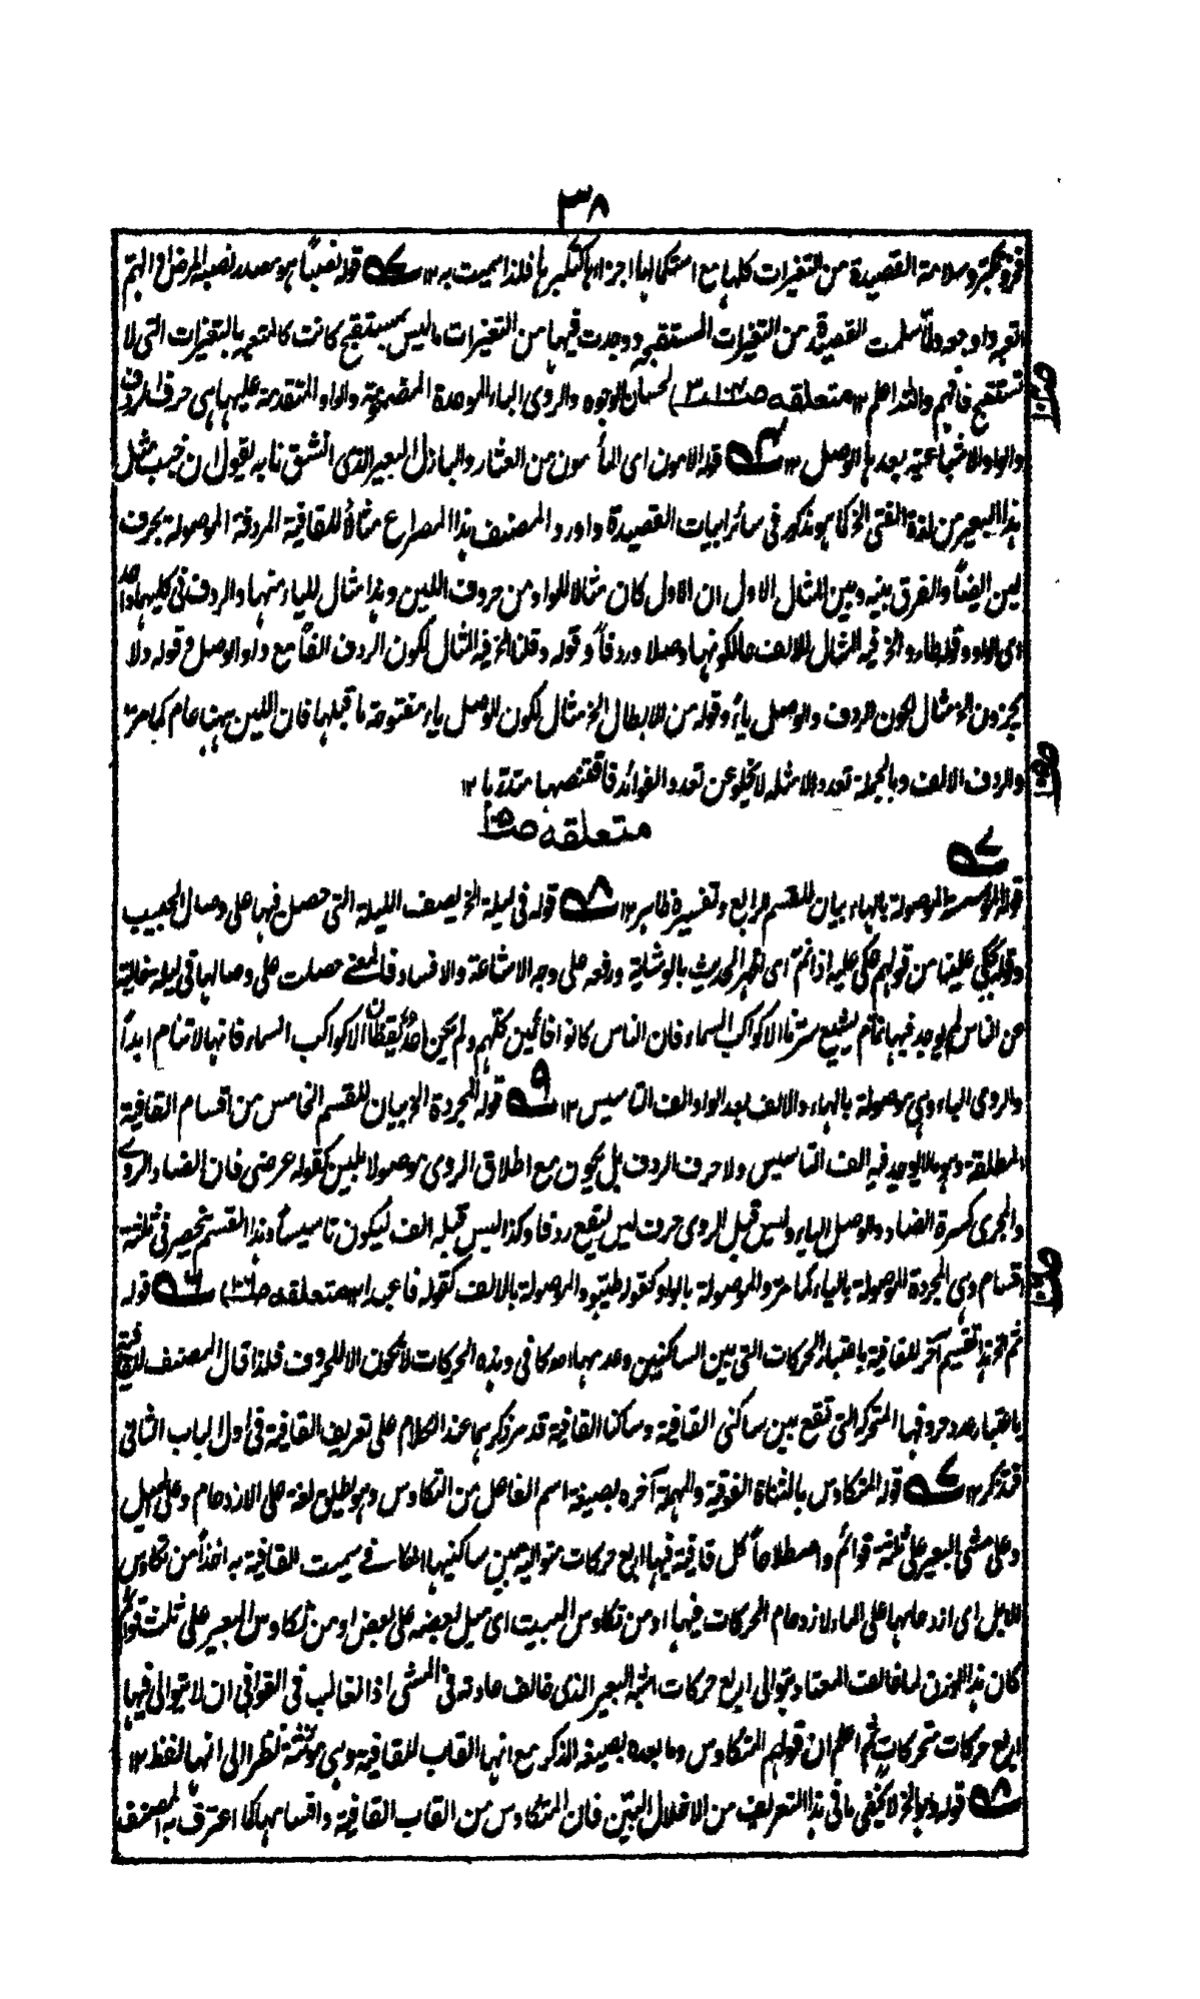 ٣٨
وسلامة القصيدة من التغيرات كلها مع استكمالها اجزاءها فلذا سميت به ١٢ قوله نصباً هو مصدر نصبه المرض او الهم
اتعبه واوجعه ولمّا سلمت القصيدة من التغيرات المستقبحة ووجدت فيها من التغيرات ما ليس بمستقبح كانت كالمتعبة بالتغيرات التى لا
تستقبح فافهم والله اعلم ١٢ متعلقه لحسان الوجوه والروى الباء الموحدة المضمومة والواو المتقدمة عليها هى حرف الردف
والواو الاشباعية بعدها الوصل ١٢ قوله الامون اى المأمون من العثار والبازل البعير الذى انشق نابه يقول ان خبب مثل
هذا البعير من لذة الفتى الخ كما هو مذكور فى سائر ابيات القصيدة واورد المصنف هذا المصراع مثالاً للقافية المردفة الموصولة بحرف
لين ايضاً والفرق بينه وبين المثال الاول ان الاول كان مثالا للواو من حروف اللين وهذا مثال للياء منها والردف فى كليهما واحد
اى الواو وقوله الخ فيه المثال للالف حال كونها وصلا وردفاً وقوله وقلنا الخ فيه المثال لكون الردف الفاً مع واو الوصل وقوله ولا
يجزون الخ مثال لكون الردف واو والوصل ياءً وقوله من الابطال الخ مثال لكون الوصل ياء مفتوحة ما قبلها فان اللين ههنا عام كما مرّ
والردف الالف وبالجملة تعدد الامثلة لا يخلو عن تعدد الفوائد فاقتنصها متدرّبا ١٢
متعلقه ص١٠٥
قوله المؤسسة الموصولة بالهاء بيان للقسم الرابع وتفسيره ظاهر ١٢ ٨ قوله فى ليلة الخ يصف الليلة التى حصل فيها على وصال الحبيب
وقوله يحكى علينا من قولهم حكى عليه اذا نمّ اى اظهر الحديث بالوشاية ورفعه على وجه الاشاعة والافساد فالمعنى حصلت على وصالها فى ليلة خالية
عن الناس لم يوجد فيها نمّام يشيع سرّنا الا كواكب السماء فان الناس كانوا نائمين كلهم ولم يكن احدٌ يقظان الا كواكب السماء فانها لا تنام ابداً
والروى الباء وهى موصولة بالهاء والالف بعد الواو الف التاسيس ١٢ ٩ قوله المجردة الخ بيان للقسم الخامس من اقسام القافية
المطلقة وهو ما لا يوجد فيه الف التاسيس ولا حرف الردف بل يكون مع اطلاق الروى موصولا بلين كقوله عرضى فان الضاد الروى
والمجرى كسرة الضاد والوصل الياء وليس قبل الروى حرف لين ليقع ردفا وكذا ليس قبله الف ليكون تاسيساً وهذا القسم ينحصر فى ثلثة
اقسام وهى المجردة الموصولة بالياء كما مرّ والموصولة بالواو كقوله والموصولة بالالف كقوله ١٢ متعلقه ٦ قوله
ثم الخ هذا تقسيم آخر للقافية باعتبار الحركات التى بين الساكنين وعدمها وهذه الحركات لا تكون الا للحروف فلذا قال المصنف للقافية
باعتبار عدد حروفها المتحركة التى تقع بين ساكنى القافية وساكنا القافية قد مر ذكرهما عند الكلام على تعريف القافية فى اول الباب الثانى
فتذكر ١٢ ٧ قوله المتكاوس بالمثناة الفوقية والمهملة آخره بصيغة اسم الفاعل من التكاوس وهو يطلق لغة على الازدحام وعلى الميل
وعلى مشى البعير على ثلثة قوائم واصطلاحاً كل قافية فيها اربع حركات متوالية بين ساكنيها سميت القافية به اخذاً من تكاوس
الابل اى ازدحامها على الماء لازدحام الحركات فيها او من تكاوس البيت اى ميل بعضه على بعض او من تكاوس البعير على ثلث قوائم
كان هذا الوزن لما خالف المعتاد بتوالى اربع حركات اشبه البعير الذى خالف عادته فى المشى اذ الغالب فى القوافى ان لا تتوالى فيها
اربع حركات متحركات ثم اعلم ان قولهم المتكاوس وما بعده بصيغة الذكر مع انها القاب للقافية وهى مؤنثة نظرا الى انها لفظ ١٢
٨ قوله وهو الخ لا يخفى ما فى هذا التعريف من الاخلال البيّن فان المتكاوس من القاب القافية واقسامها كما اعترف به المصنف